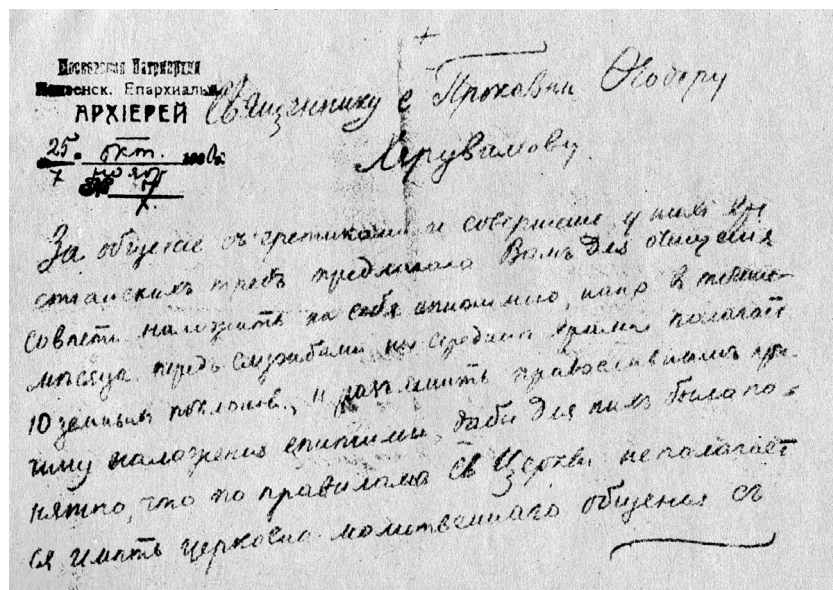 Московская Патриархия
Пензенск. Епархиальн.
АРХІЕРЕЙ
25 окт.
7 нояб
№ 17
+
Священнику с Проказни Ѳеодору
За общение съ еретиками и совершение у нихъ хри
стіанскихъ требъ предлагаю Вамъ для очищенія
совѣсти наложить на себя епитимію, въ
мѣсяца передъ службами на срединѣ храма полагать
10 земныхъ поклоновъ, и разъяснить православнымъ при-
чину наложенія епитиміи, дабы для нихъ было по-
нятно, что по правиламъ Св Церкви неполагает
ся имѣть церковно-молитвеннаго общенія съ